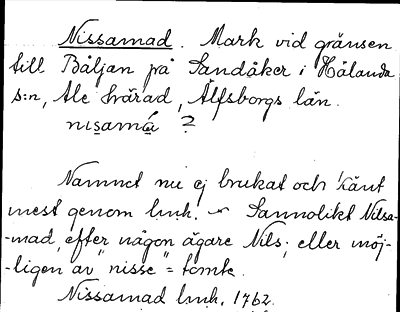 Nissamad. Mark vid gränsen
till Båljan på Sandåker i Hålanda
s:n, Ale härad, Älfsborgs län.
nisamá ?
Namnet nu ej brukat och känt
mest genom lmh. ~ Sannolikt Nilsa-
-mad, efter någon ägare Nils; eller möj-
-ligen av "nisse" = tomte.
Nissamad lmh. 1762.